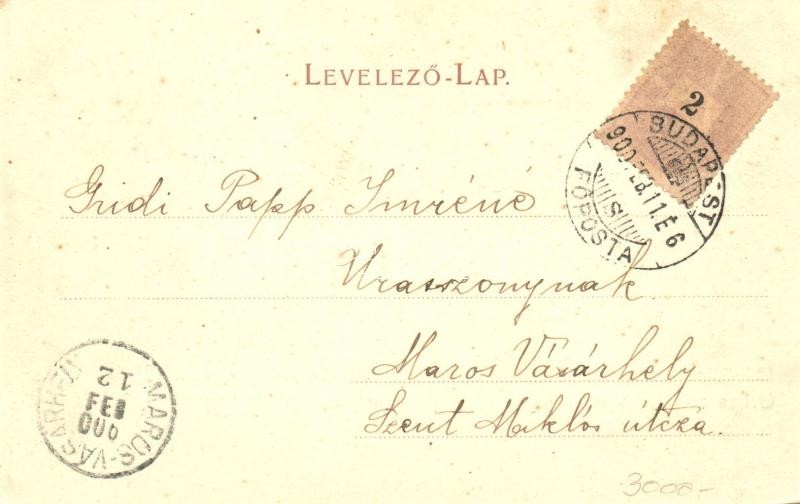 LEVELEZŐ-LAP.
2
BUDAPEST
900 FEB.11.E6
S
FŐPOSTA
Papp Imréné
Uraszonynak
Maros Vásárhely
Szent Miklós útcza.
MAROS-VÁSÁRHELY
12
FEB
900
3000-